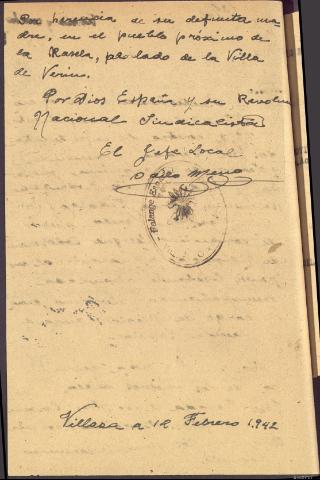 de su difunta ma
dre, en el pueblo próximo de
la Rasela, pto lado de la Villa
de Verin.
Por Dios España y su Revolu
Nacional Sindicalista
El Jefe Local
Falange Es
Villaza a 12 Febrero 1.942